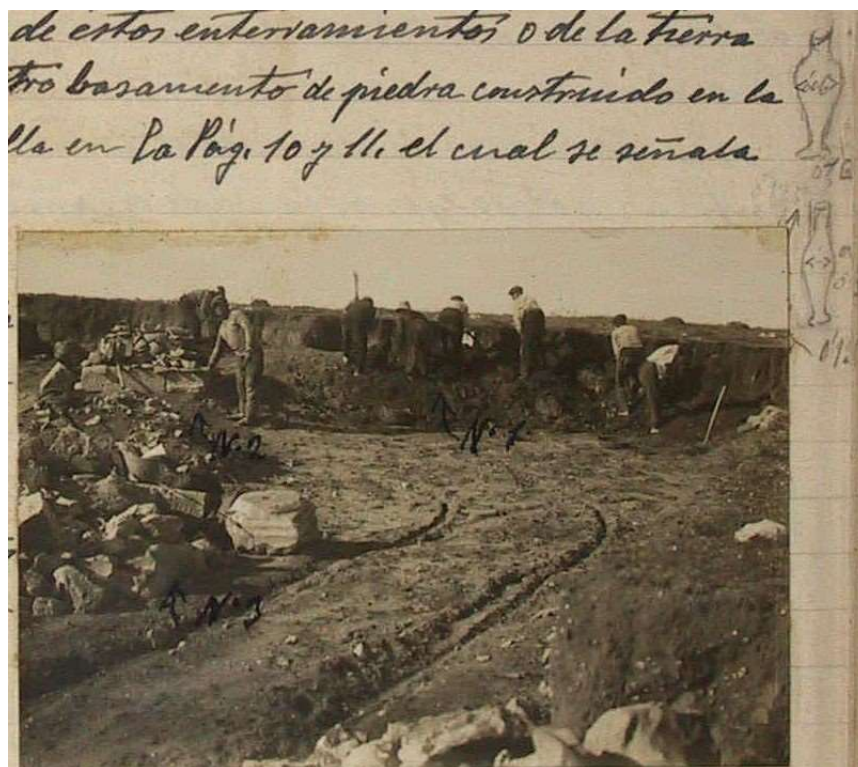 de éstos enterramientos o de la tierra
tro basamento de piedra construido en la
lla en la Pág. 10 y 11. el cual se señala
Nº 2
Nº 1
Nº 3